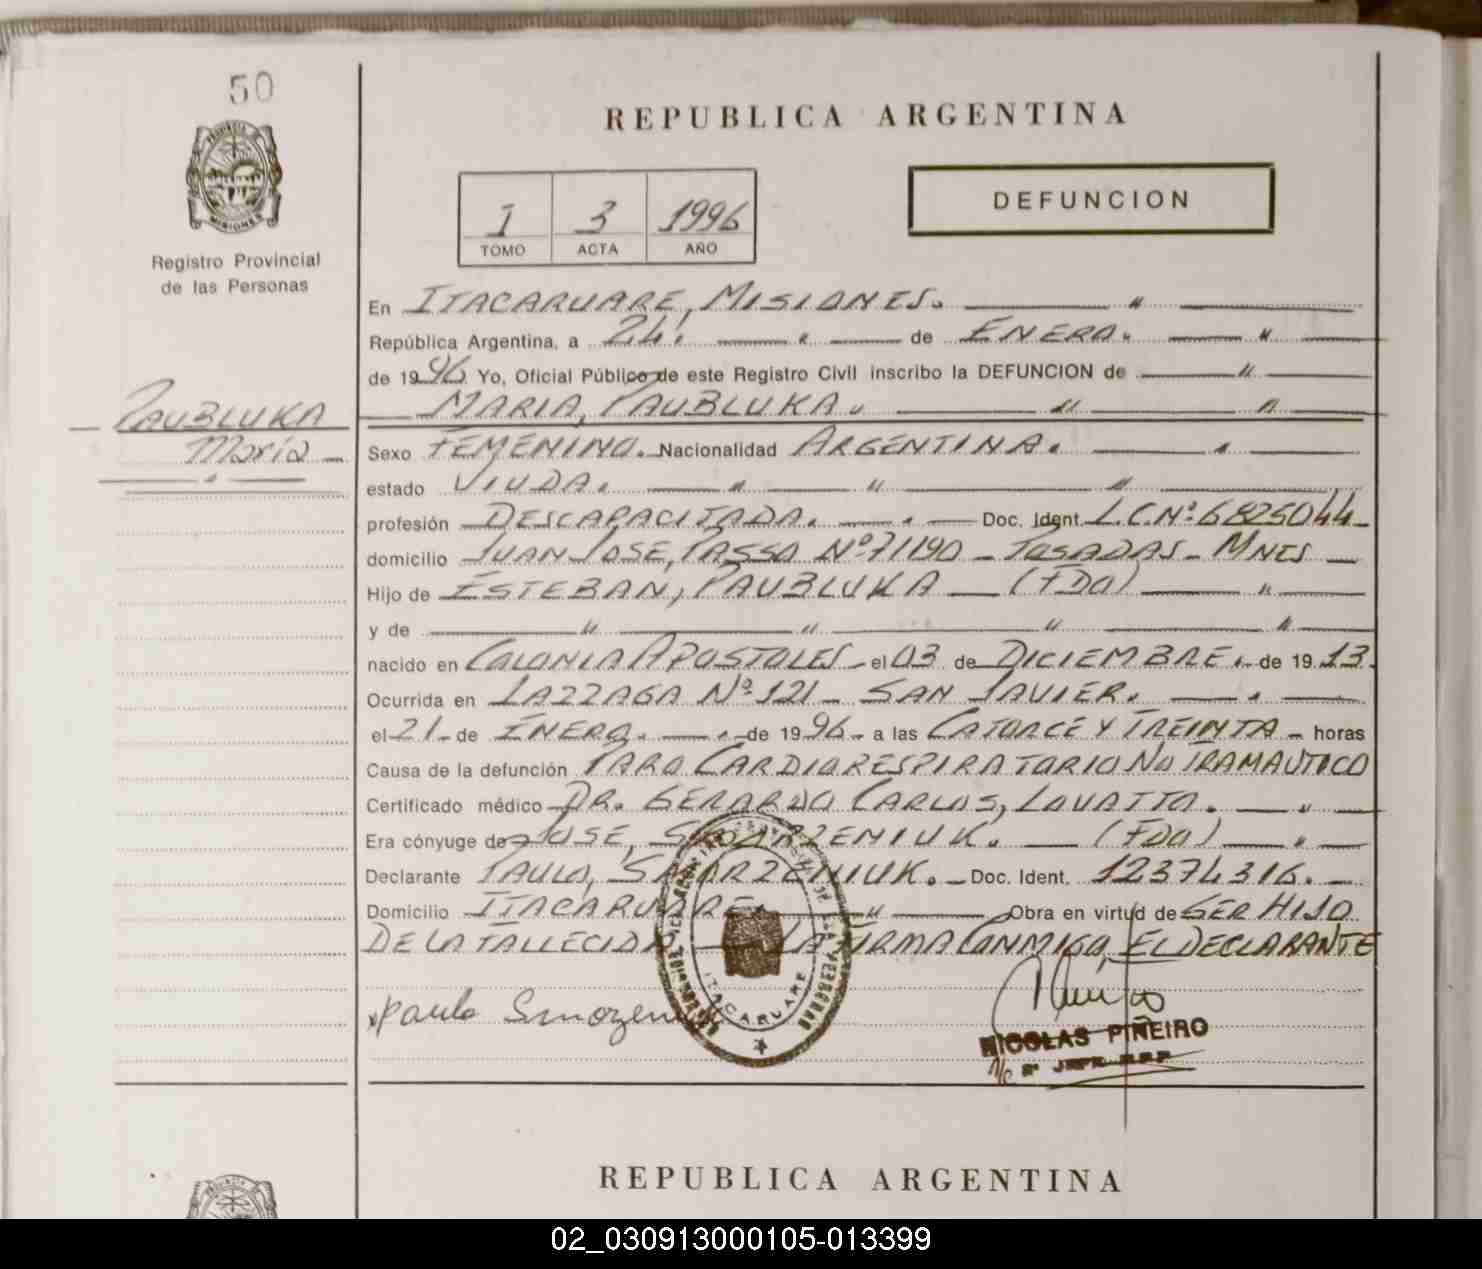 50
REPUBLICA ARGENTINA
PROVINCIA DE
MISIONES
Registro Provincial
de las Personas
I 3 1996
TOMO ACTA AÑO
DEFUNCION
En ITACARUARE, MISIONES. — " —
República Argentina, a 24. — " — de ENERO. — " —
de 1996 Yo, Oficial Público de este Registro Civil inscribo la DEFUNCION de — " —
— MARIA, PAUBLUKA. — " — " —
PAUBLUKA
María —
— " —
Sexo FEMENINO. Nacionalidad ARGENTINA. — " —
estado VIUDA. — " — " — " —
profesión DESCAPACITADA. — " — Doc. Ident. L.C.Nº 6825044 —
domicilio JUAN JOSE, PASSO Nº 71190 — POSADAS — MNES —
Hijo de ESTEBAN, PAUBLUKA — (FDO) — " —
y de — " — " — " — " —
nacido en COLONIA APOSTOLES — el 03 de DICIEMBRE. — de 1913.
Ocurrida en LAZZAGA Nº 121 — SAN JAVIER. — " —
el 21 — de ENERO. — " — de 1996 — a las CATORCE Y TREINTA — horas
Causa de la defunción PARO CARDIORESPIRATORIO NO TRAMAUTICO
Certificado médico DR. GERARDO CARLOS, LOVATTO. — " —
Era cónyuge de JOSE, SMORZENIUK. — (FDO) — " —
Declarante PAULO, SMORZENIUK. — Doc. Ident. 12374316. —
Domicilio ITACARUARE. — " — Obra en virtud de SER HIJO
DE LA FALLECIDA — LA FIRMA CONMIGO, EL DECLARANTE
ITACARUARE
Paulo
NICOLAS PIÑEIRO
REPUBLICA ARGENTINA
02_030913000105-013399